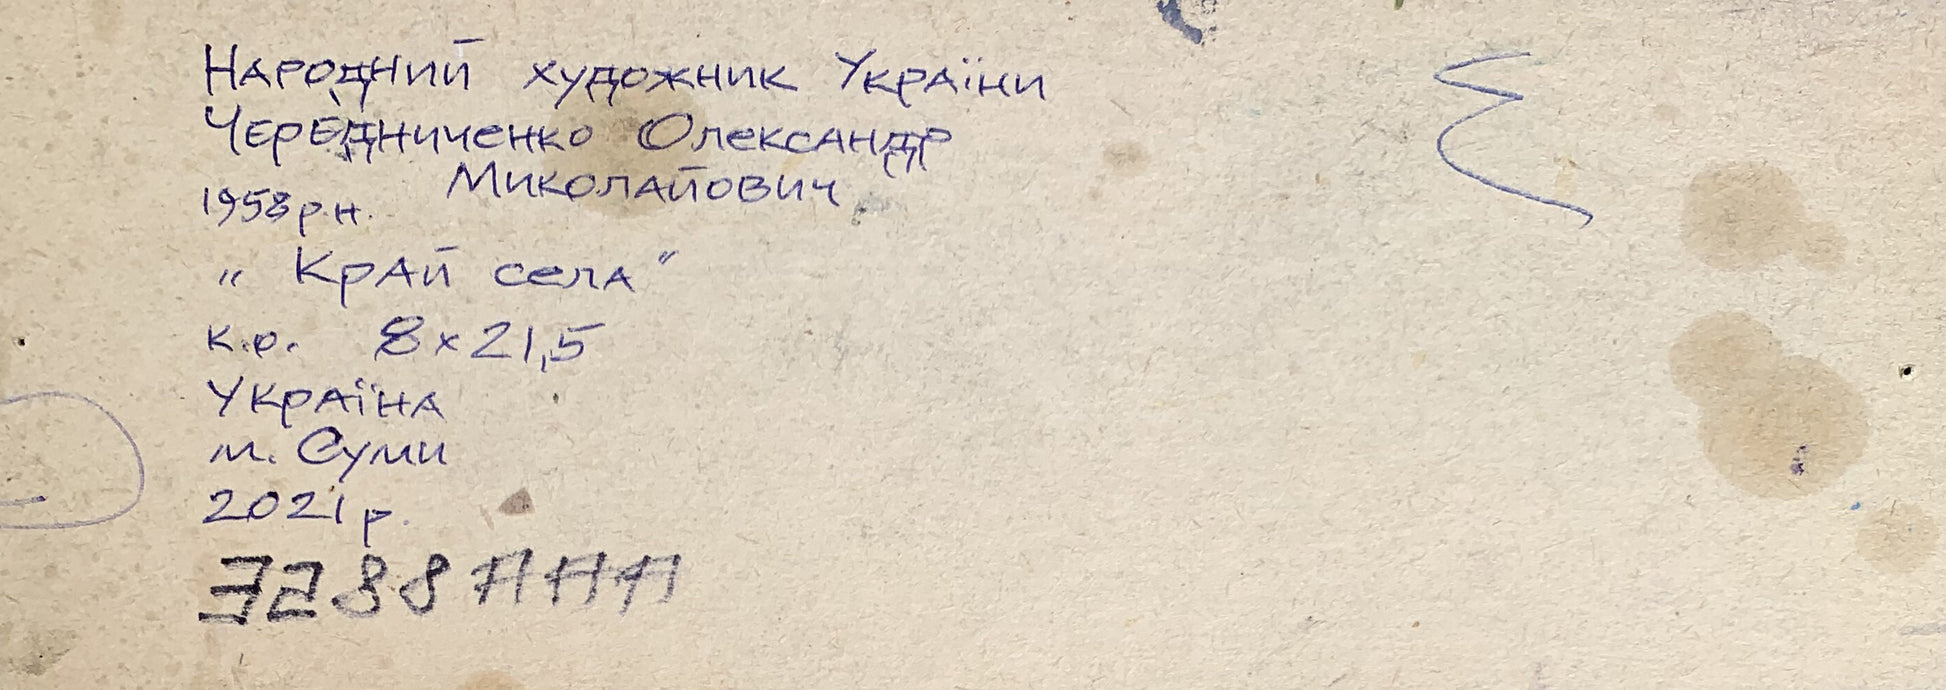 Народний художник України
Чередниченко Олександр
Миколайович
1958 р.н.
„ Край села"
к.о. 8 x 21,5
Україна
м. Суми
2021 р.